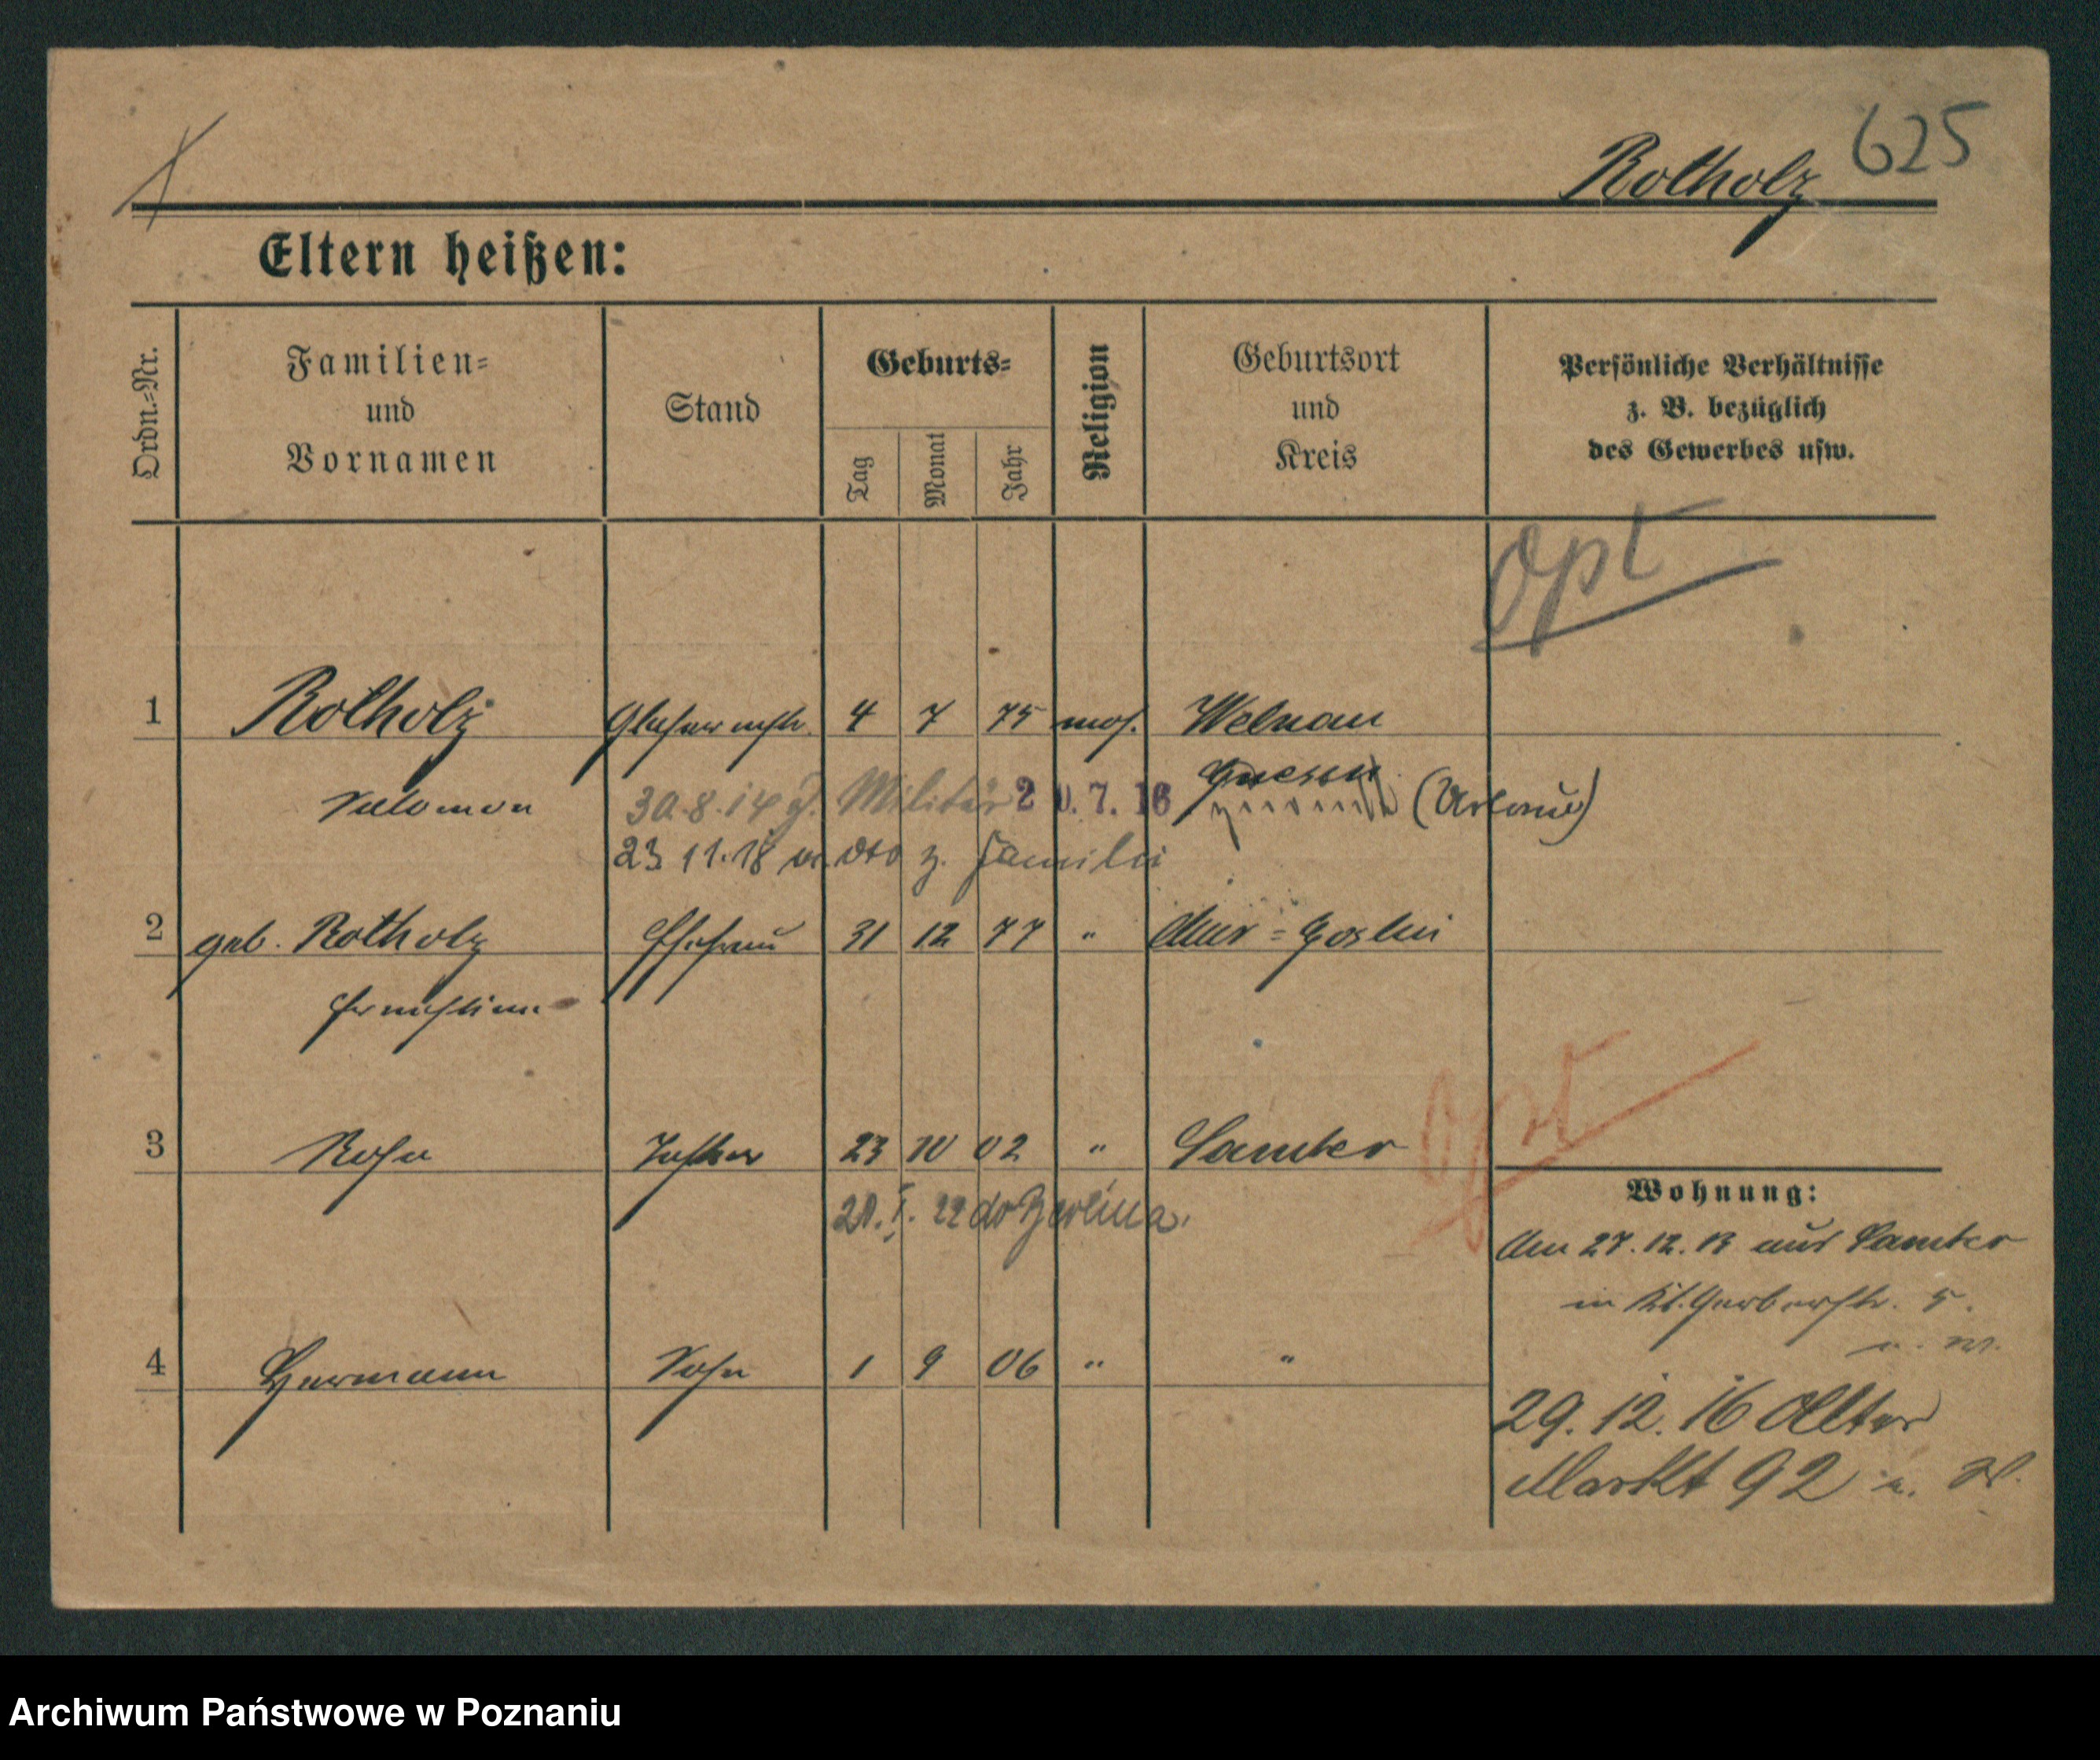 Rotholz 625
Eltern heißen:
Ordn.-Nr.
Familien-
und
Vornamen
Stand
Geburts-
Tag
Monat
Jahr
Religion
Geburtsort
und
Kreis
Persönliche Verhältnisse
z. B. bezüglich
des Gewerbes usw.
Opt
1 Rotholz Glasermstr. 4 7 75 mos. Welnau
Salomon 30.8.14 z. Militär 20.7.16 Gnesen (Urlaub)
23 11.18 z. Familie
2 geb. Rotholz Ehefrau 31 12 77 " Mur=Goslin
Ernestine
Opt
3 Rosa Tochter 23 10 02 " Samter
21. I. 22 do Berlina.
Wohnung:
Am 27.12.13 aus Samter
in Kl. Gerberstr. 5.
u. W.
4 Hermann Sohn 1 9 06 " "
29. 12. 16 Alter
Markt 92 u. W.
Archiwum Państwowe w Poznaniu